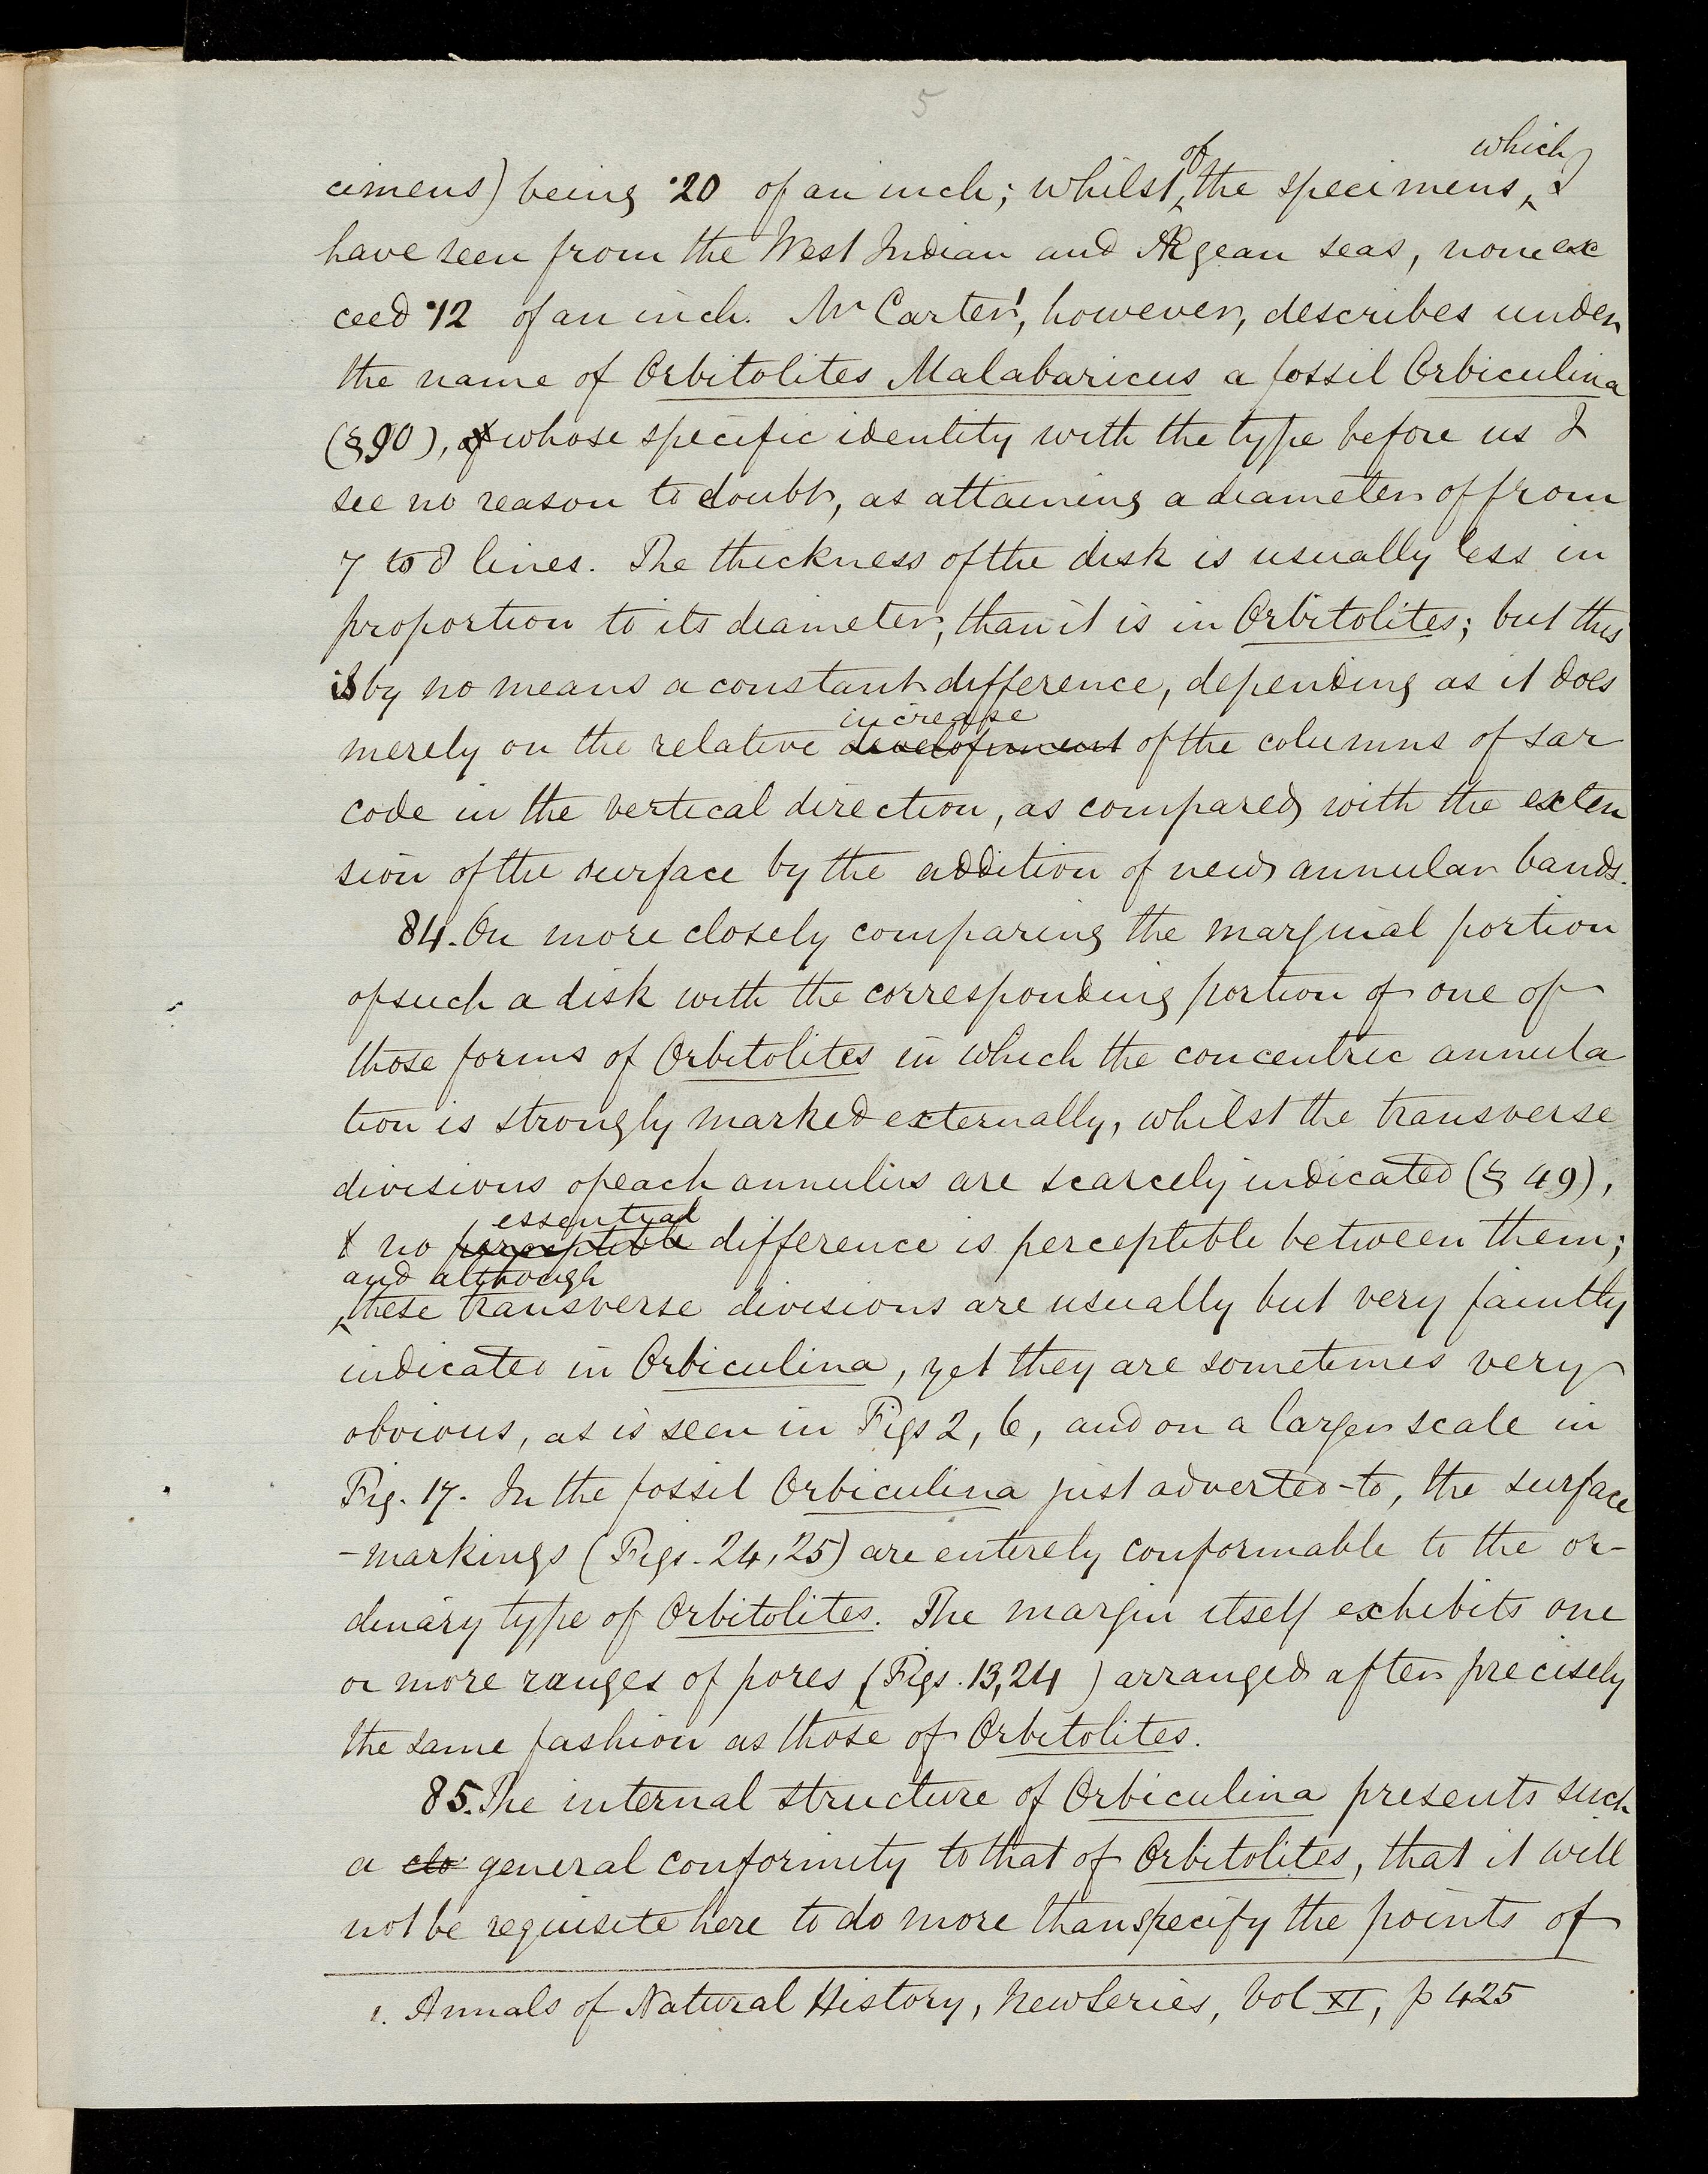 5
cimens) being ·20 of an inch; whilst of the specimens, which I
have seen from the West Indian and Ægean seas, none ex
ceed ·12 of an inch. Mr Carter¹, however, describes under
the name of Orbitolites Malabaricus a fossil Orbiculina
(§90), of whose specific identity with the type before us I
see no reason to doubt, as attaining a diameter of from
7 to 8 lines. The thickness of the disk is usually less in
proportion to its diameter, than it is in Orbitolites; but this
is by no means a constant difference, depending as it does
merely on the relative development increase of the columns of sar
code in the vertical direction, as compared with the exten
sion of the surface by the addition of new annular bands.
84. On more closely comparing the marginal portion
of such a disk with the corresponding portion of one of
those forms of Orbitolites in which the concentric annula
tion is strongly marked externally, whilst the transverse
divisions of each annulus are scarcely indicated (§ 49),
& no perceptible essential difference is perceptible between them;
and although these transverse divisions are usually but very faintly
indicated in Orbiculina, yet they are sometimes very
obvious, as is seen in Figs 2, 6, and on a larger scale in
Fig. 17. In the fossil Orbiculina just adverted-to, the surface
-markings (Figs. 24, 25) are entirely conformable to the or-
dinary type of Orbitolites. The margin itself exhibits one
or more ranges of pores (Figs. 13, 24 ) arranged after precisely
the same fashion as those of Orbitolites.
85. The internal structure of Orbiculina presents such
a clo general conformity to that of Orbitolites, that it will
not be requisite here to do more than specify the points of
1. Annals of Natural History, New Series, Vol XI, p 425